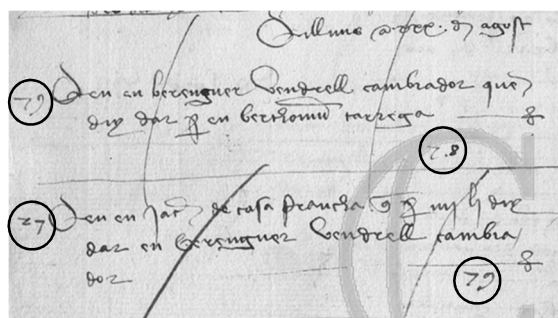 Dilluns a xxx. de agost
79 Deu en berenguer Vendrell cambiador que
dix dar per en berthomeu tarrega
78
27 Deu en Jac de casa francha que per iiii ll dix
dar en Berenguer Vendrell cambia
dor
79